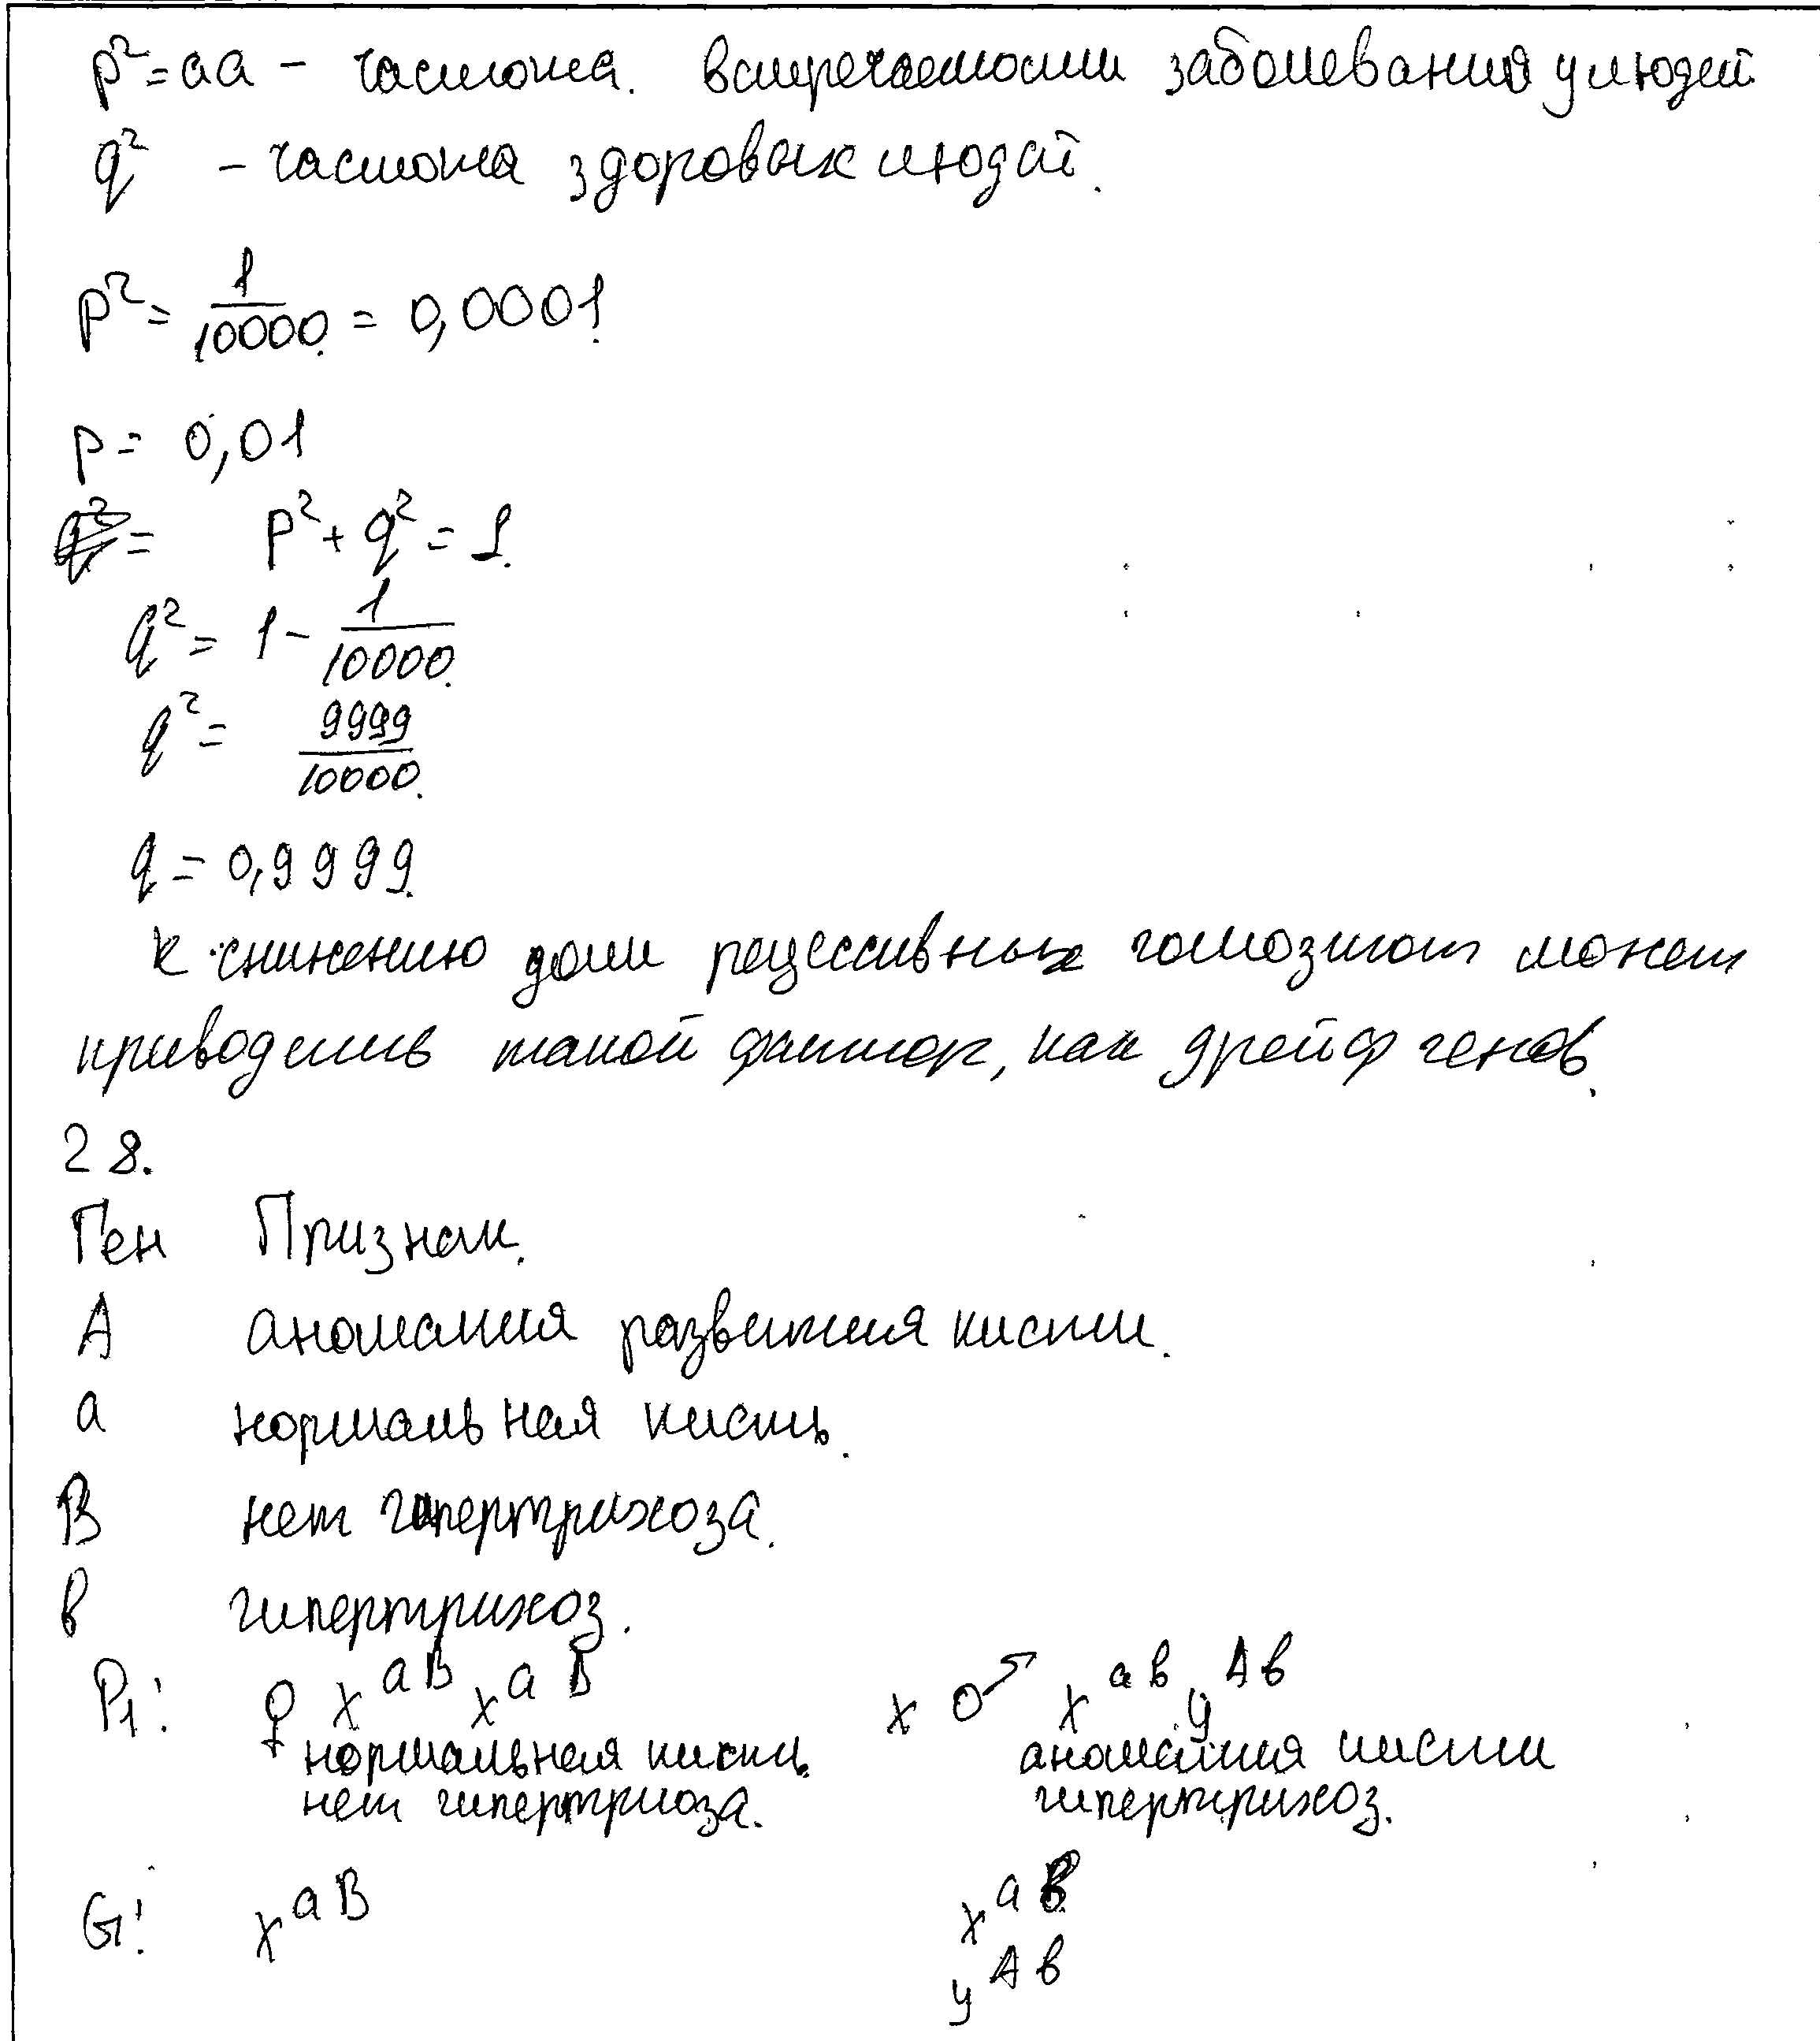 p² = аа - частота. встречаемости заболевания у людей
q² - частота здоровых людей.
p² = 1/10000 = 0,0001.
p = 0,01
q² = p² + q² = 1.
q² = 1 - 1/10000.
q² = 9999/10000.
q = 0,9999.
К снижению доли рецессивных гомозигот может
приводить такой фактор, как дрейф генов.
28.
Ген Признак.
А аномалия развития кисти.
а нормальная кисть.
В нет гипертрихоза.
в гипертрихоз.
P₁: ♀ X^аВ X^аВ x ♂ X^ав У^Ав
нормальная кисть. аномалия кисти
нет гипертриоза. гипертрихоз.
G: X^аВ X^ав
У^Ав